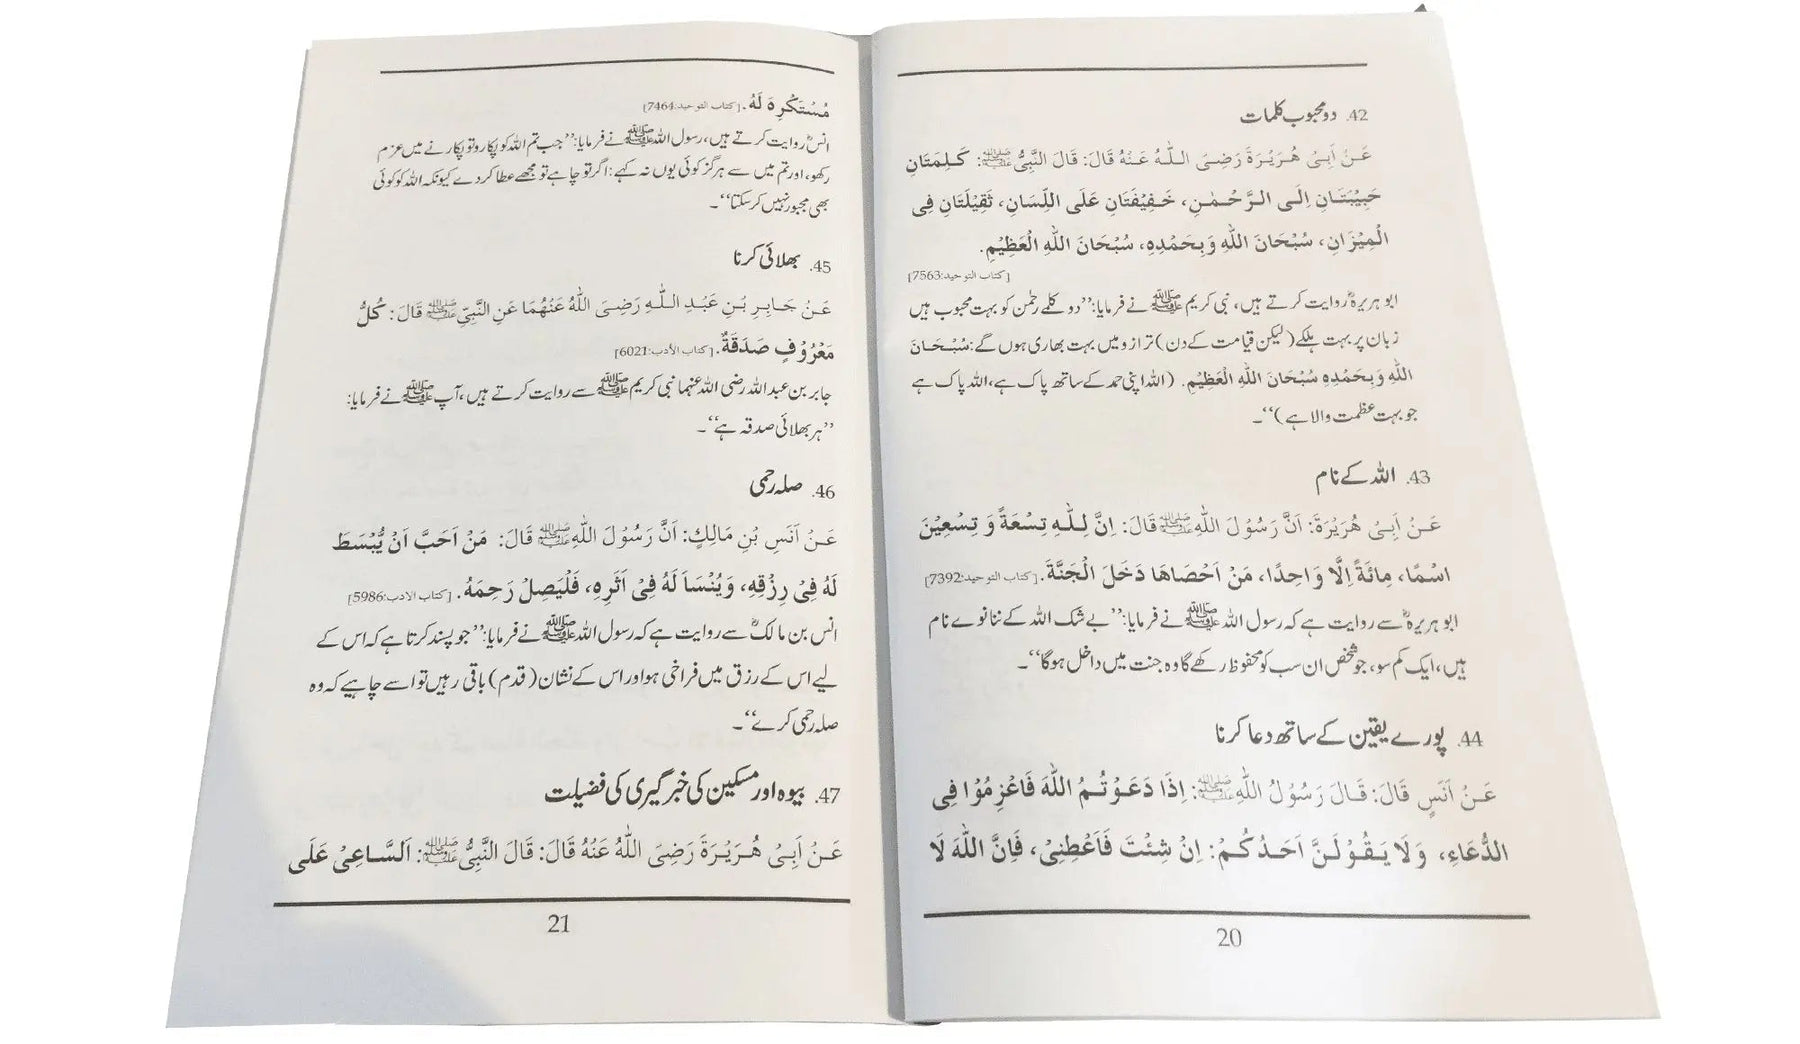 42. دو محبوب کلمات
عَنْ اَبِیْ هُرَیْرَةَ رَضِیَ اللّٰهُ عَنْهُ قَالَ: قَالَ النَّبِیُّ ﷺ: كَلِمَتَانِ
حَبِیْبَتَانِ اِلَی الرَّحْمٰنِ، خَفِیْفَتَانِ عَلَی اللِّسَانِ، ثَقِیْلَتَانِ فِی
الْمِیْزَانِ، سُبْحَانَ اللّٰهِ وَبِحَمْدِهِ، سُبْحَانَ اللّٰهِ الْعَظِیْمِ.
[کتاب التوحید:7563]
ابو ہریرہؓ روایت کرتے ہیں، نبی کریم ﷺ نے فرمایا: ’’دو کلمے رحمٰن کو بہت محبوب ہیں
زبان پر بہت ہلکے (لیکن قیامت کے دن) ترازو میں بہت بھاری ہوں گے: سُبْحَانَ
اللّٰهِ وَبِحَمْدِهِ سُبْحَانَ اللّٰهِ الْعَظِیْمِ. (اللہ اپنی حمد کے ساتھ پاک ہے، اللہ پاک ہے
جو بہت عظمت والا ہے)‘‘۔
43. اللہ کے نام
عَنْ اَبِیْ هُرَیْرَةَ: اَنَّ رَسُوْلَ اللّٰهِ ﷺ قَالَ: اِنَّ لِلّٰهِ تِسْعَةً وَ تِسْعِیْنَ
اسْمًا، مِائَةً اِلَّا وَاحِدًا، مَنْ اَحْصَاهَا دَخَلَ الْجَنَّةَ. [کتاب التوحید:7392]
ابو ہریرہؓ سے روایت ہے کہ رسول اللہ ﷺ نے فرمایا: ’’بے شک اللہ کے ننانوے نام
ہیں، ایک کم سو، جو شخص ان سب کو محفوظ رکھے گا وہ جنت میں داخل ہوگا‘‘۔
44. پورے یقین کے ساتھ دعا کرنا
عَنْ اَنَسٍ قَالَ: قَالَ رَسُوْلُ اللّٰهِ ﷺ: اِذَا دَعَوْتُمُ اللّٰهَ فَاعْزِمُوْا فِی
الدُّعَاءِ، وَلَا یَقُوْلَنَّ اَحَدُكُمْ: اِنْ شِئْتَ فَاَعْطِنِیْ، فَاِنَّ اللّٰهَ لَا
20
مُسْتَكْرِهَ لَهُ. [کتاب التوحید:7464]
انسؓ روایت کرتے ہیں، رسول اللہ ﷺ نے فرمایا: ’’جب تم اللہ کو پکارو تو پکارنے میں عزم
رکھو، اور تم میں سے ہرگز کوئی یوں نہ کہے: اگر تو چاہے تو مجھے عطا کردے کیونکہ اللہ کو کوئی
بھی مجبور نہیں کرسکتا‘‘۔
45. بھلائی کرنا
عَنْ جَابِرِ بْنِ عَبْدِ اللّٰهِ رَضِیَ اللّٰهُ عَنْهُمَا عَنِ النَّبِیِّ ﷺ قَالَ: كُلُّ
مَعْرُوْفٍ صَدَقَةٌ. [کتاب الأدب:6021]
جابر بن عبد اللہ رضی اللہ عنہما نبی کریم ﷺ سے روایت کرتے ہیں، آپ ﷺ نے فرمایا:
’’ہر بھلائی صدقہ ہے‘‘۔
46. صلہ رحمی
عَنْ اَنَسِ بْنِ مَالِكٍ: اَنَّ رَسُوْلَ اللّٰهِ ﷺ قَالَ: مَنْ اَحَبَّ اَنْ یُّبْسَطَ
لَهُ فِیْ رِزْقِهِ، وَیُنْسَاَ لَهُ فِیْ اَثَرِهِ، فَلْیَصِلْ رَحِمَهُ. [کتاب الادب:5986]
انس بن مالکؓ سے روایت ہے کہ رسول اللہ ﷺ نے فرمایا: ’’جو پسند کرتا ہے کہ اس کے
لیے اس کے رزق میں فراخی ہو اور اس کے نشان (قدم) باقی رہیں تو اسے چاہیے کہ وہ
صلہ رحمی کرے‘‘۔
47. بیوہ اور مسکین کی خبر گیری کی فضیلت
عَنْ اَبِیْ هُرَیْرَةَ رَضِیَ اللّٰهُ عَنْهُ قَالَ: قَالَ النَّبِیُّ ﷺ: اَلسَّاعِیْ عَلَی
21